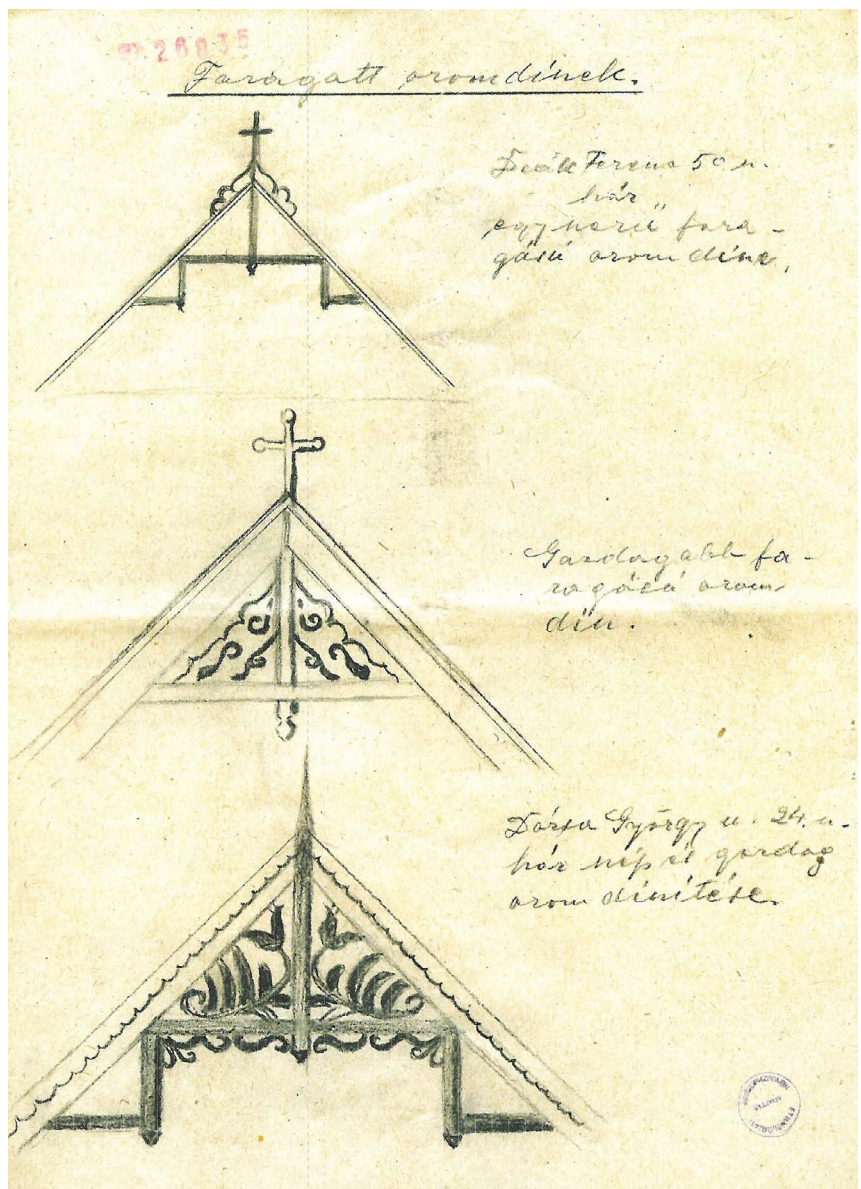 26035
Faragott oromdíszek.
Deák Ferenc 50 sz.
ház
egyszerű fara-
gású oromdísze.
Gazdagabb fa-
ragású orom-
dísz.
Dózsa György u. 24. sz.
ház szép és gazdag
orom díszítése.